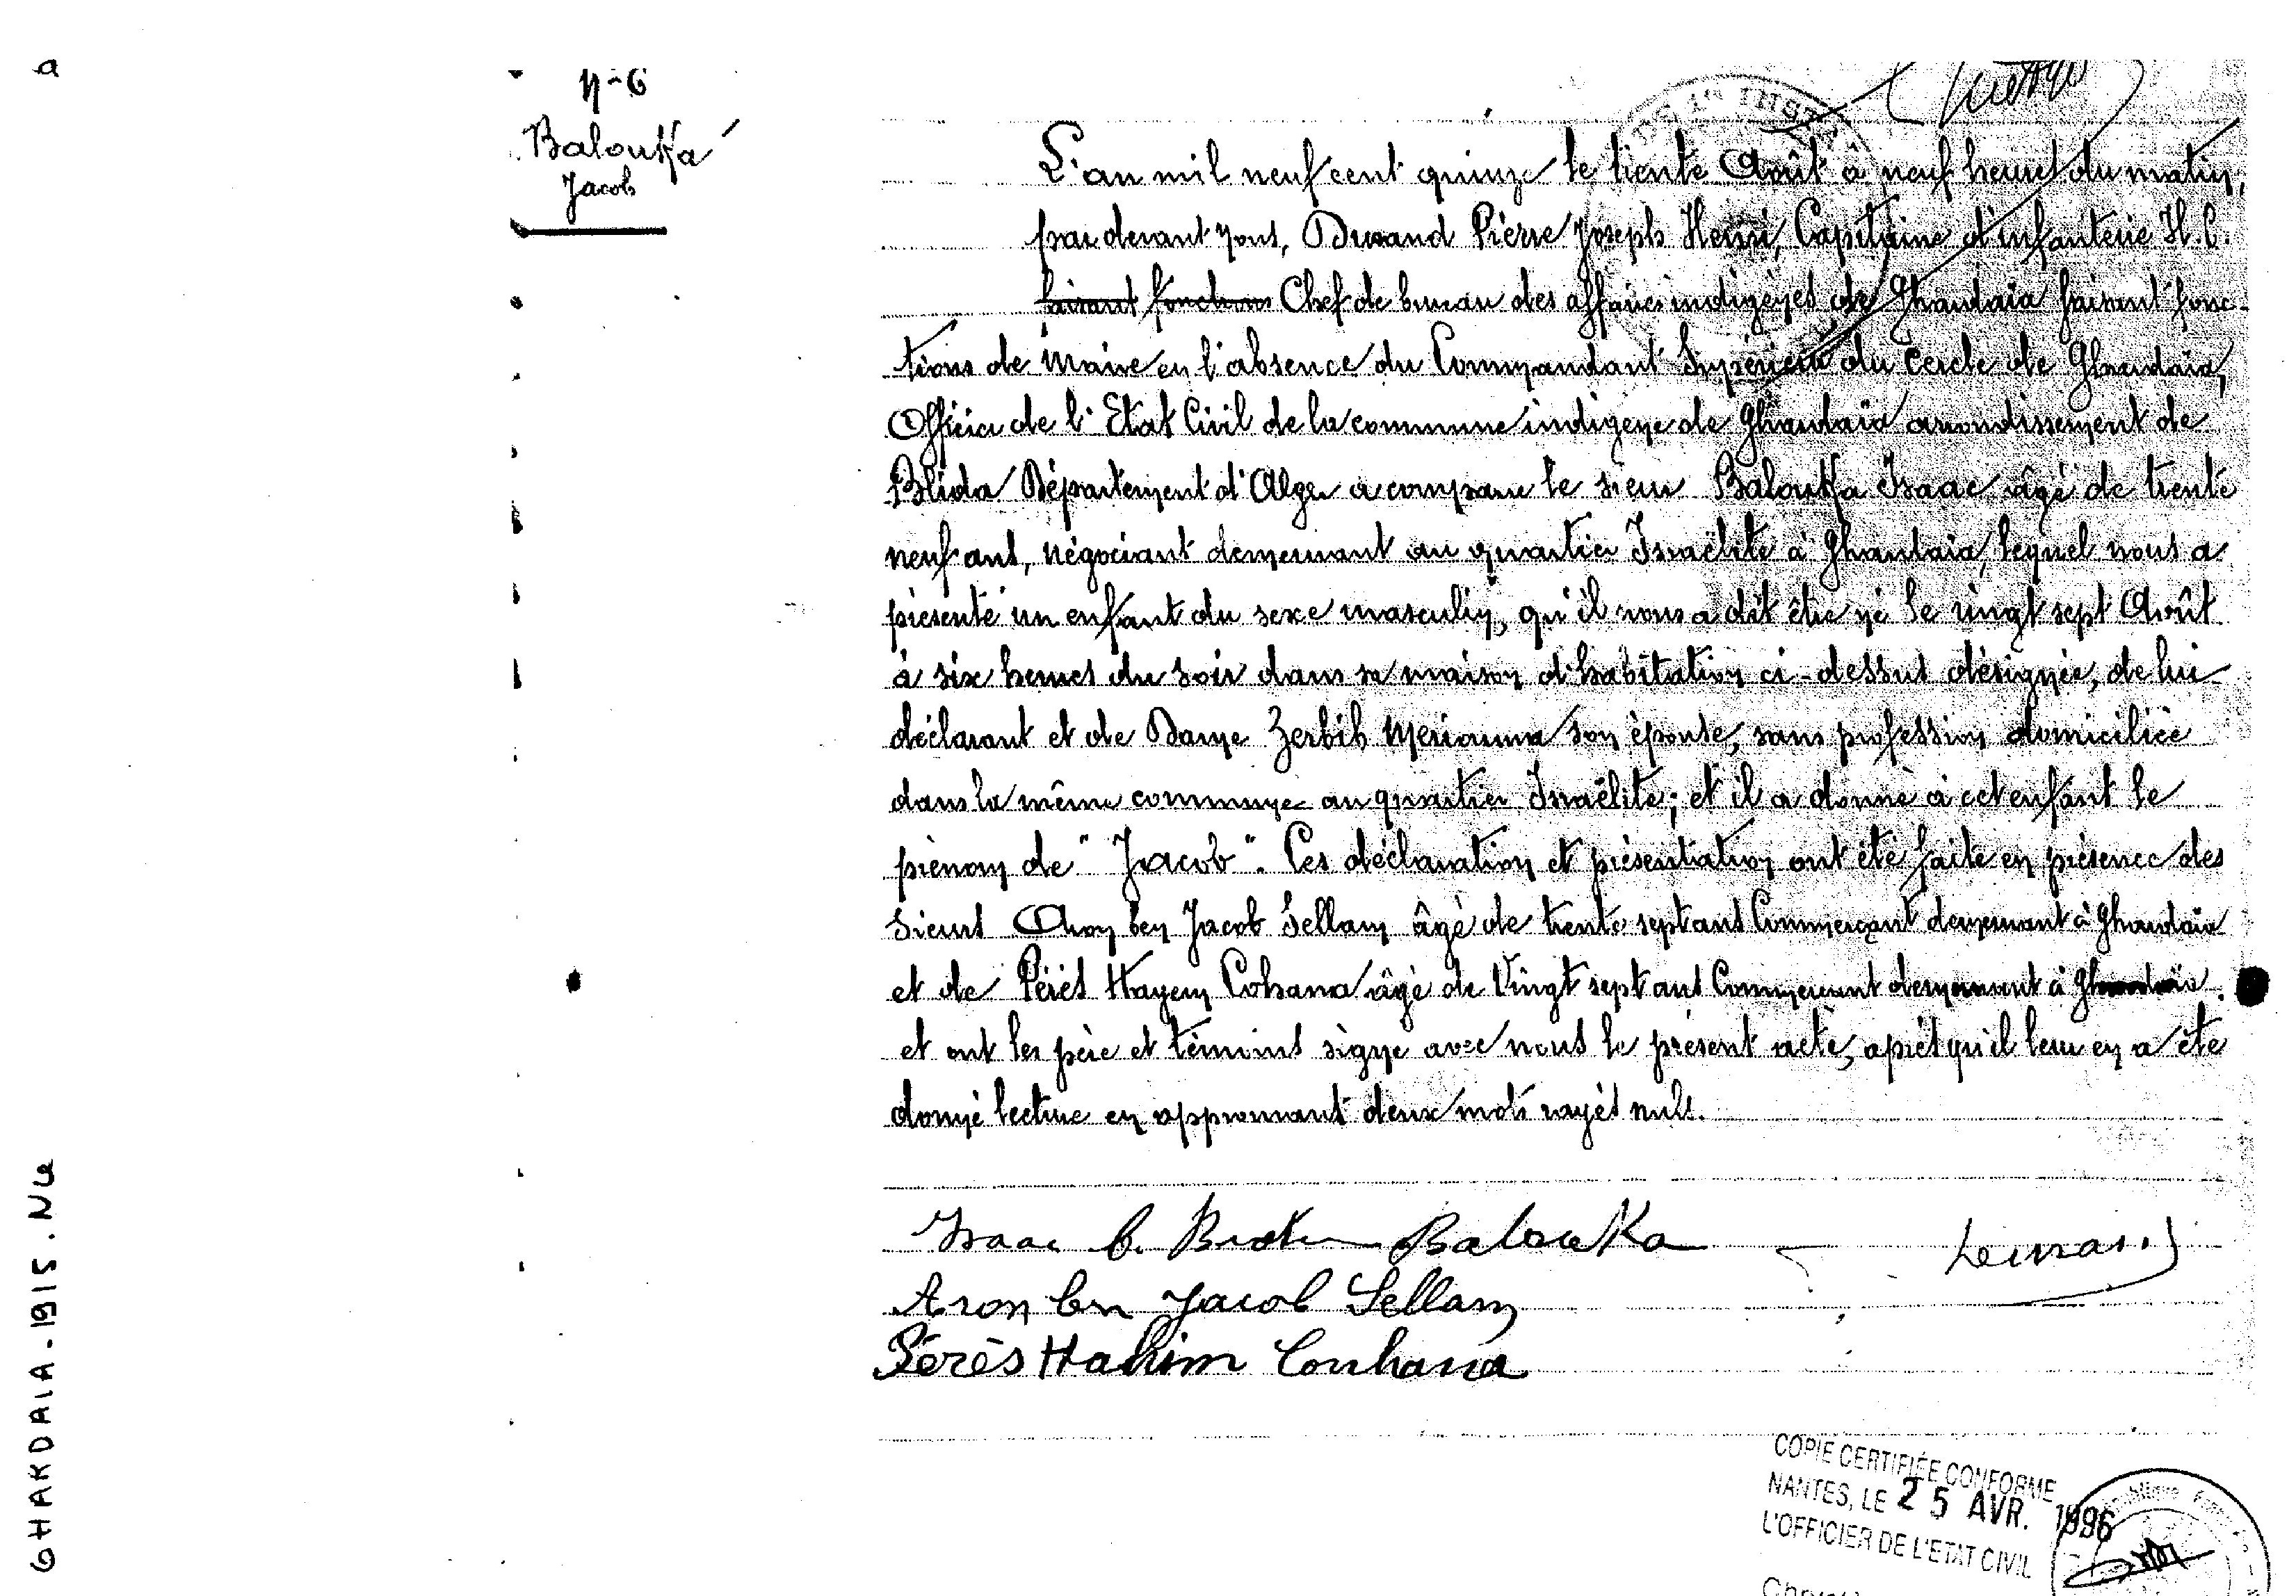 a
N° 6
Balouka
Jacob
L'an mil neuf cent quinze le trente Août à neuf heures du matin,
par devant nous, Durand Pierre Joseph Henri, Capitaine d'infanterie H.C.
faisant fonctions Chef de bureau des affaires indigènes de Ghardaïa faisant fonc-
tions de Maire en l'absence du Commandant Supérieur du Cercle de Ghardaïa,
Officier de l'Etat Civil de la commune indigène de Ghardaïa arrondissement de
Blida Département d'Alger a comparu le sieur Balouka Isaac âgé de trente
neuf ans, négociant demeurant au quartier Israëlite à Ghardaïa, lequel nous a
présenté un enfant du sexe masculin, qu'il nous a dit être né le vingt sept Août
à six heures du soir dans sa maison d'habitation ci-dessus désignée, de lui
déclarant et de Dame Zerbib Meriouma son épouse, sans profession domiciliée
dans la même commune au quartier Israëlite; et il a donné à cet enfant le
prénom de "Jacob". Ces déclaration et présentation ont été faite en présence des
sieurs Aron ben Jacob Sellam âgé de trente sept ans Commerçant demeurant à Ghardaïa
et de Pérès Hayem Cohana âgé de Vingt sept ans Commerçant demeurant à Ghardaïa.
et ont les père et témoins signé avec nous le présent acte, après qu'il leur en a été
donné lecture en approuvant deux mots rayés nuls.
Isaac b. Balouka Durand
Aron ben Jacob Sellam
Pérès Hahim Couhana
GHARDAIA - 1915. N
COPIE CERTIFIÉE CONFORME
NANTES, LE 25 AVR. 1996
L'OFFICIER DE L'ETAT CIVIL